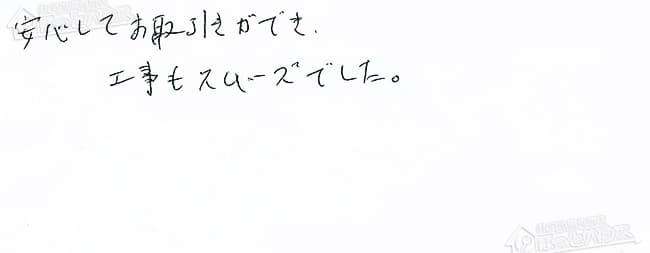 安心してお取引きができ、
工事もスムーズでした。